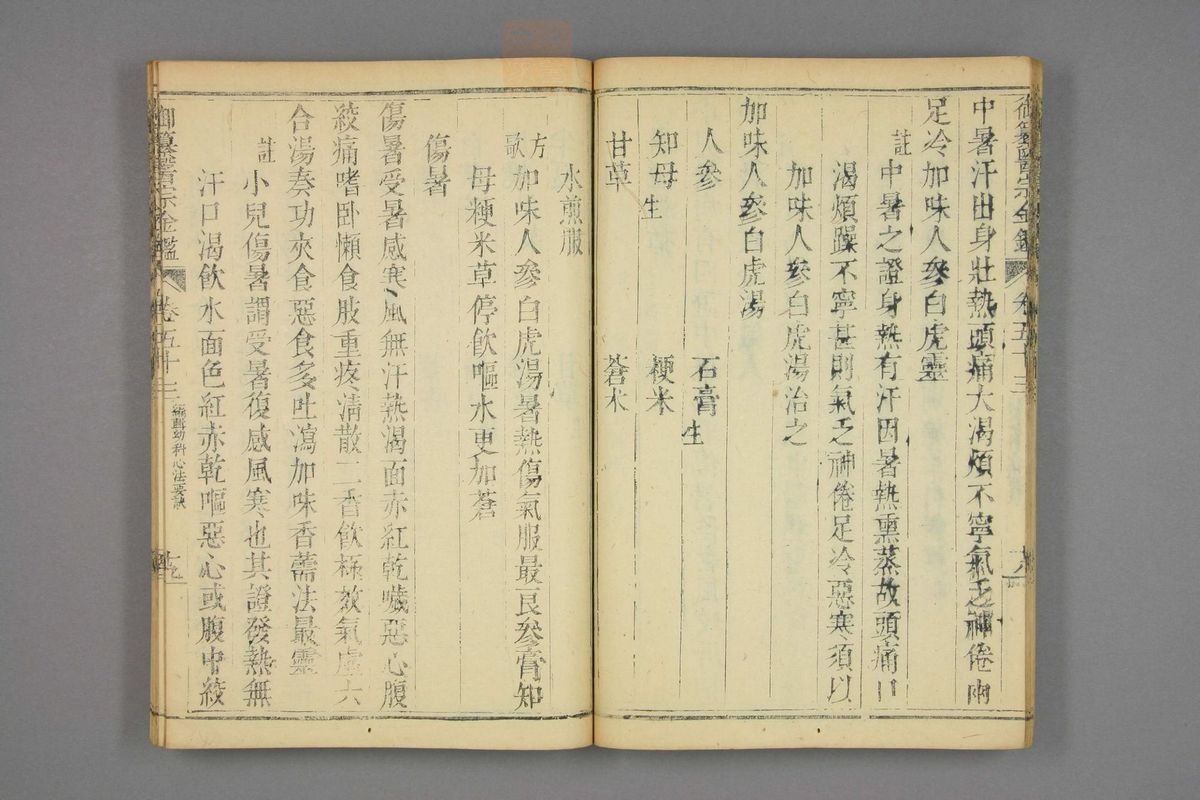 中暑汗出身壯熱頭痛大渴煩不寧氣乏神倦兩
足冷加味人參白虎靈
註中暑之證身熱有汗因暑熱熏蒸故頭痛口
渴煩躁不寧甚則氣乏神倦足冷惡寒須以
加味人參白虎湯治之
加味人參白虎湯
人參 石膏生
知母生 粳米
甘草 蒼朮
水煎服
方歌 加味人參白虎湯暑熱傷氣服最良參膏知
母粳米草停飲嘔水更加蒼
傷暑
傷暑受暑感寒風無汗熱渴面赤紅乾噦惡心腹
絞痛嗜臥懶食肢重疼清散二香飲極效氣虛六
合湯奏功夾食惡食多吐瀉加味香薷法最靈
註小兒傷暑謂受暑復感風寒也其證發熱無
汗口渴飲水面色紅赤乾嘔惡心或腹中絞
御纂醫宗金鑑 卷五十三 編輯幼科心法要訣